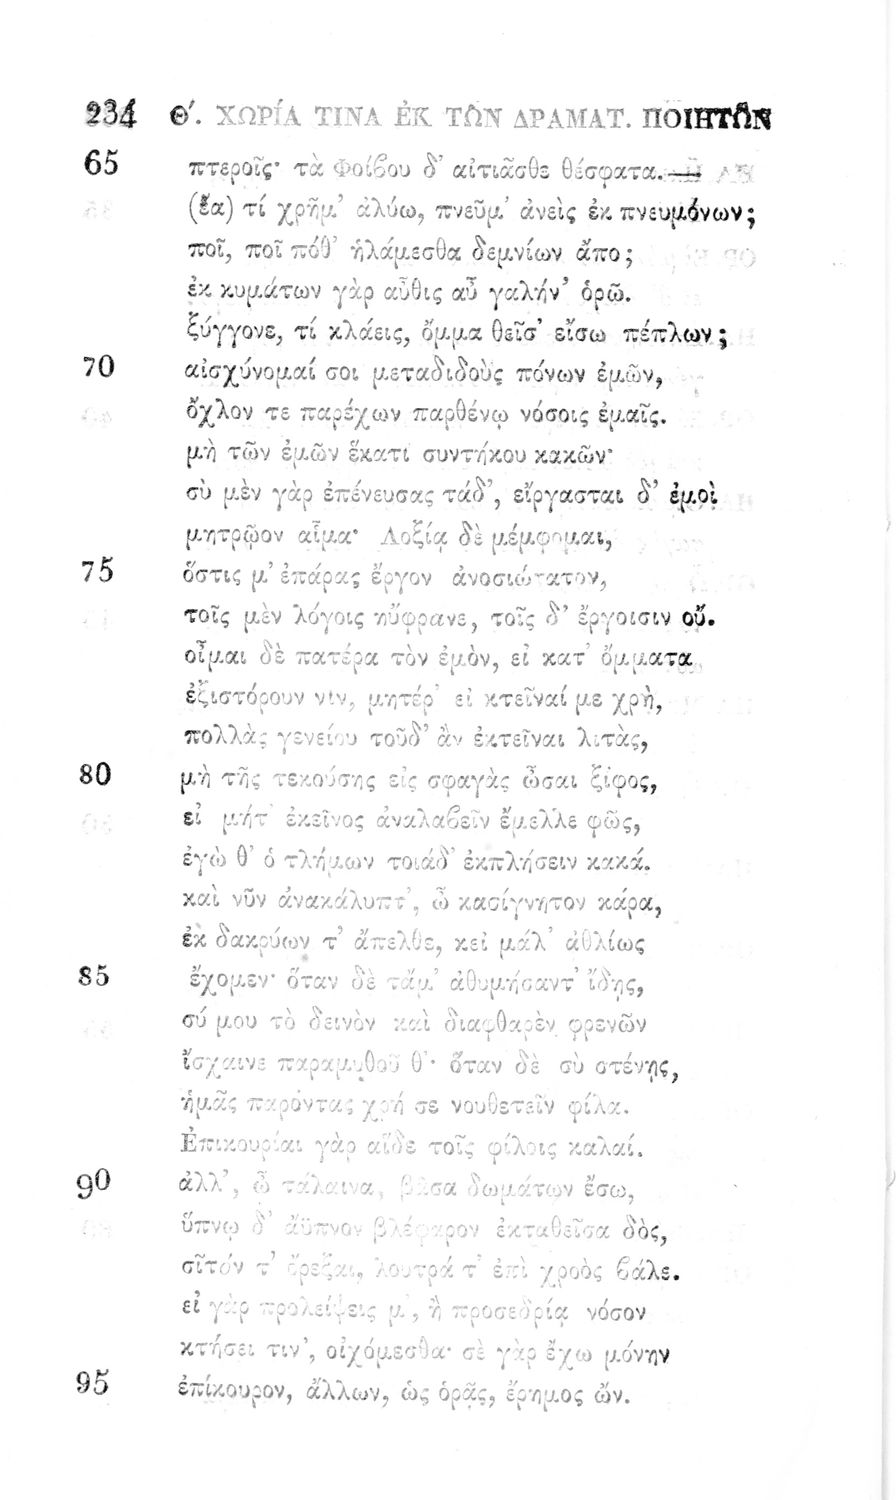 234 Θ΄. ΧΩΡΊΑ ΤΙΝΑ ἘΚ ΤΩ͂Ν ΔΡΑΜΑΤ. ΠΟΙΗΤΩ͂Ν
65 πτεροῖς· τὰ Φοίϐου δ’ αἰτιᾶσθε θέσφατα.—
(ἔα) τί χρῆμ’ ἀλύω, πνεῦμ’ ἀνεὶς ἐκ πνευμόνων;
ποῖ, ποῖ πόθ’ ἡλάμεσθα δεμνίων ἄπο;
ἐκ κυμάτων γὰρ αὖθις αὖ γαλήν’ ὁρῶ.
ξύγγονε, τί κλάεις, ὄμμα θεῖσ’ εἴσω πέπλων;
70 αἰσχύνομαί σοι μεταδιδοὺς πόνων ἐμῶν,
ὄχλον τε παρέχων παρθένῳ νόσοις ἐμαῖς.
μὴ τῶν ἐμῶν ἕκατι συντήκου κακῶν·
σὺ μὲν γὰρ ἐπένευσας τάδ’, εἴργασται δ’ ἐμοὶ
μητρῷον αἷμα· Λοξίᾳ δὲ μέμφομαι,
75 ὅστις μ’ ἐπάρας ἔργον ἀνοσιώτατον,
τοῖς μὲν λόγοις ηὔφρανε, τοῖς δ’ ἔργοισιν οὔ.
οἶμαι δὲ πατέρα τὸν ἐμὸν, εἰ κατ’ ὄμματα
ἐξιστόρουν νιν, μητέρ’ εἰ κτεῖναί με χρὴ,
πολλὰς γενείου τοῦδ’ ἂν ἐκτεῖναι λιτὰς,
80 μὴ τῆς τεκούσης εἰς σφαγὰς ὦσαι ξίφος,
εἰ μήτ’ ἐκεῖνος ἀναλαϐεῖν ἔμελλε φῶς,
ἐγὼ θ’ ὁ τλήμων τοιάδ’ ἐκπλήσειν κακά.
καὶ νῦν ἀνακάλυπτ’, ὦ κασίγνητον κάρα,
ἐκ δακρύων τ’ ἄπελθε, κεἰ μάλ’ ἀθλίως
85 ἔχομεν· ὅταν δὲ τἄμ’ ἀθυμήσαντ’ ἴδῃς,
σύ μου τὸ δεινὸν καὶ διαφθαρὲν φρενῶν
ἴσχαινε παραμυθοῦ θ’· ὅταν δὲ σὺ στένῃς,
ἡμᾶς παρόντας χρή σε νουθετεῖν φίλα.
Ἐπικουρίαι γὰρ αἵδε τοῖς φίλοις καλαί.
90 ἀλλ’, ὦ τάλαινα, βᾶσα δωμάτων ἔσω,
ὕπνῳ δ’ ἄϋπνον βλέφαρον ἐκταθεῖσα δὸς,
σῖτόν τ’ ὄρεξαι, λουτρά τ’ ἐπὶ χροὸς ϐάλε.
εἰ γὰρ προλείψεις μ’, ἢ προσεδρίᾳ νόσον
κτήσει τιν’, οἰχόμεσθα· σὲ γὰρ ἔχω μόνην
95 ἐπίκουρον, ἄλλων, ὡς ὁρᾷς, ἔρημος ὤν.